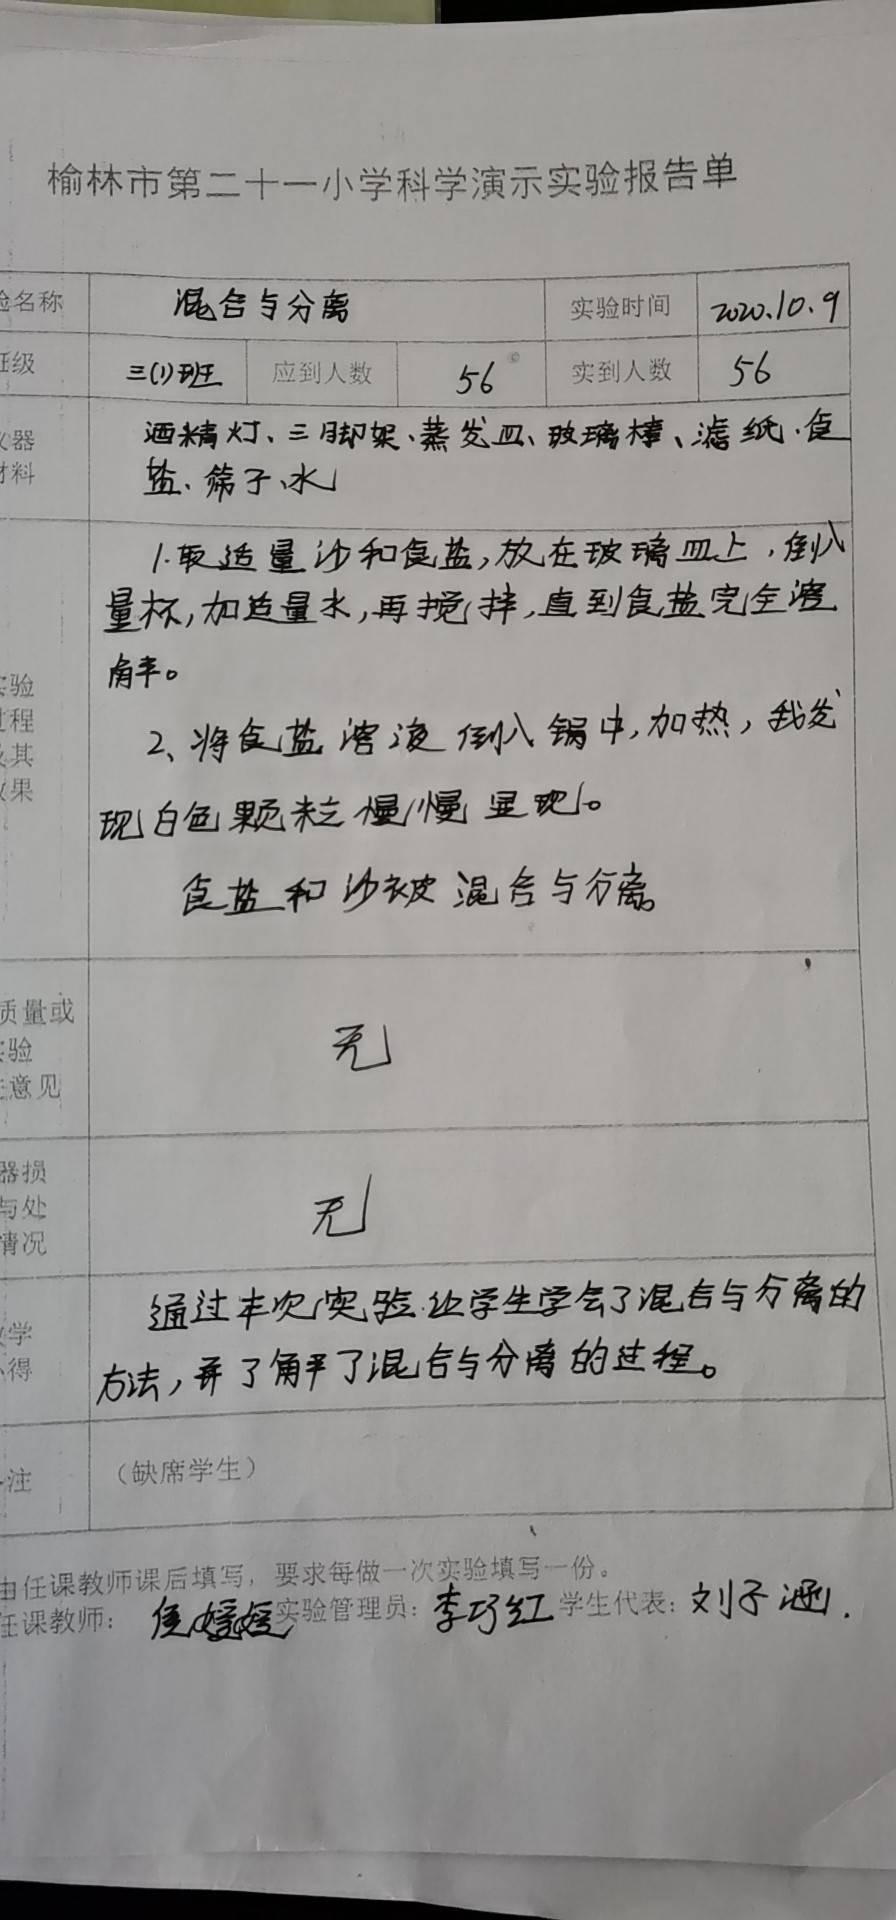 榆林市第二十一小学科学演示实验报告单
验名称 混合与分离 实验时间 2020.10.9
班级 三(1)班 应到人数 56 实到人数 56
仪器
材料
酒精灯、三脚架、蒸发皿、玻璃棒、滤纸、食
盐、筛子、水
1.取适量沙和食盐,放在玻璃皿上,倒入
量杯,加适量水,再搅拌,直到食盐完全溶
解。
实验
过程
及其
效果
2、将食盐溶液倒入锅中,加热,我发
现白色颗粒慢慢显现。
食盐和沙被混合与分离。
质量或
实验
意见
无
器损
与处
情况
无
教学
心得
通过本次实验让学生学会了混合与分离的
方法,并了解了混合与分离的过程。
注 (缺席学生)
由任课教师课后填写,要求每做一次实验填写一份。
任课教师: 侯媛媛 实验管理员: 李巧红 学生代表: 刘子涵.